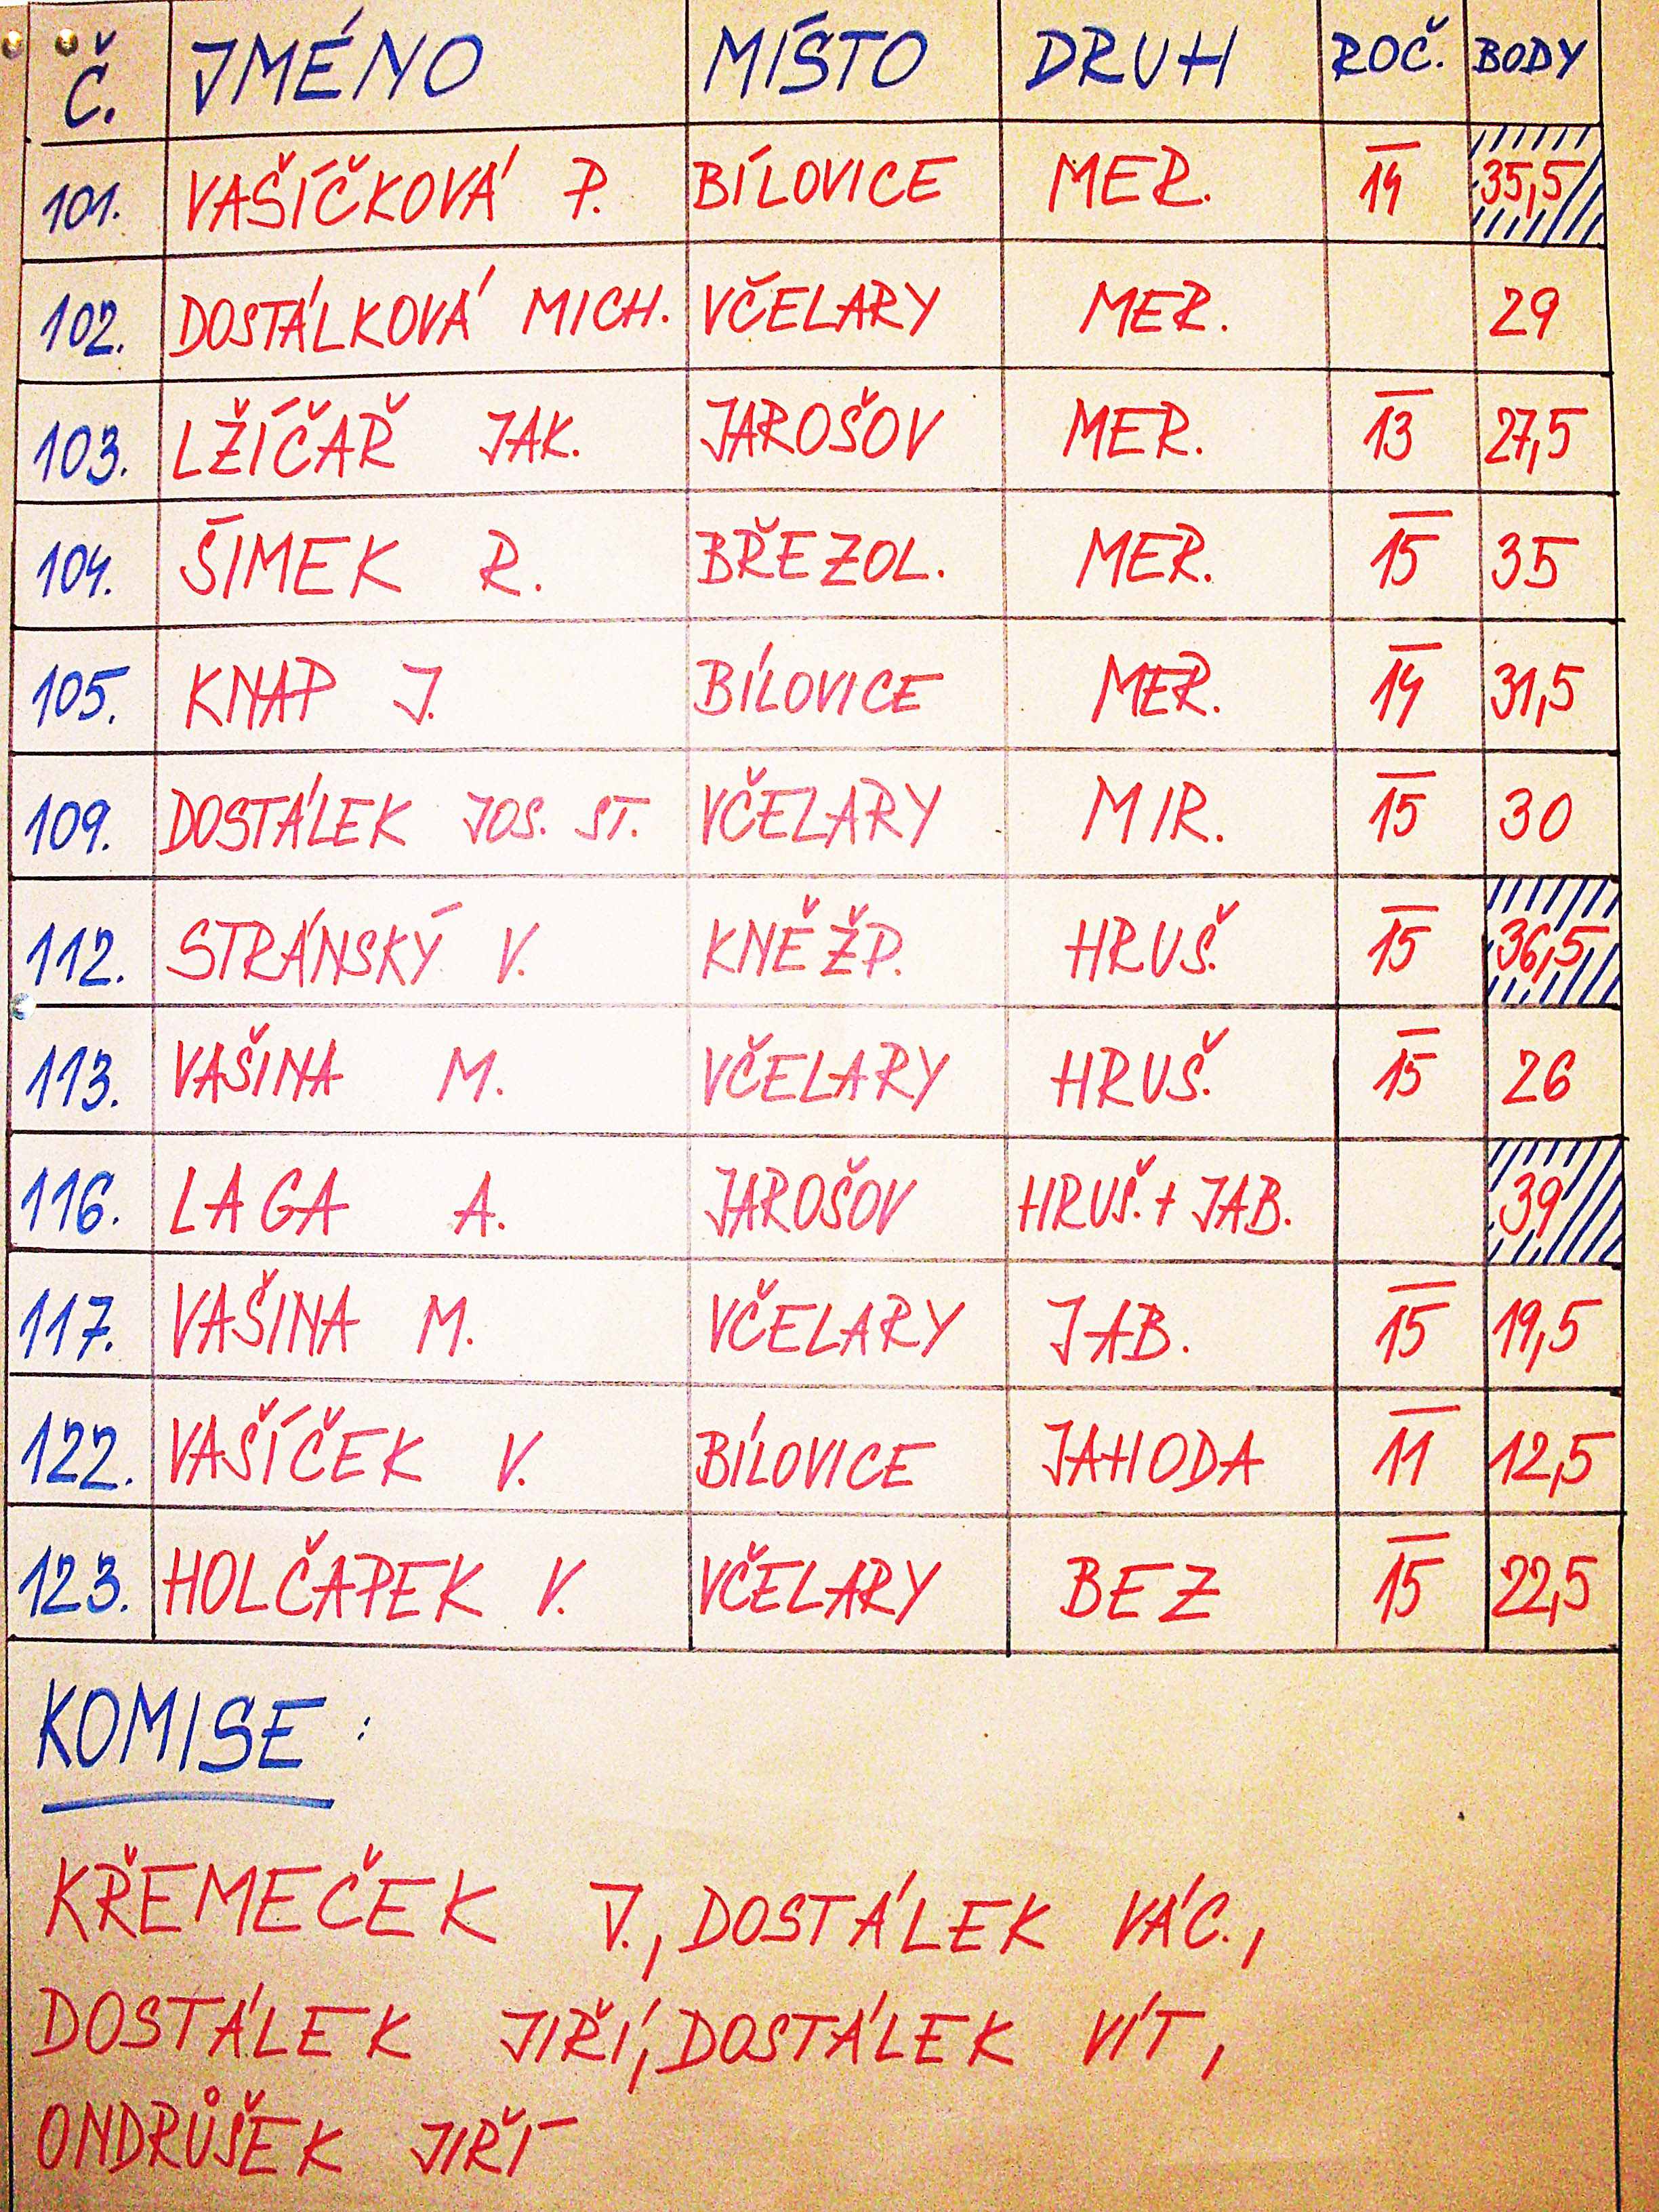 Č. JMÉNO MÍSTO DRUH ROČ. BODY
101. VAŠÍČKOVÁ P. BÍLOVICE MER. 14 35,5
102. DOSTÁLKOVÁ MICH. VČELARY MER. 29
103. LŽÍČAŘ JAK. JAROŠOV MER. 13 27,5
104. ŠÍMEK R. BŘEZOL. MER. 15 35
105. KNAP J. BÍLOVICE MER. 14 31,5
109. DOSTÁLEK JOS. ST. VČELARY MIR. 15 30
112. STRÁNSKÝ V. KNĚŽP. HRUŠ. 15 36,5
113. VAŠINA M. VČELARY HRUŠ. 15 26
116. LAGA A. JAROŠOV HRUŠ. + JAB. 39
117. VAŠINA M. VČELARY JAB. 15 19,5
122. VAŠÍČEK V. BÍLOVICE JAHODA 11 12,5
123. HOLČAPEK V. VČELARY BEZ 15 22,5
KOMISE :
KŘEMEČEK J., DOSTÁLEK VÁC.,
DOSTÁLEK JIŘÍ, DOSTÁLEK VÍT,
ONDRŮŠEK JIŘÍ